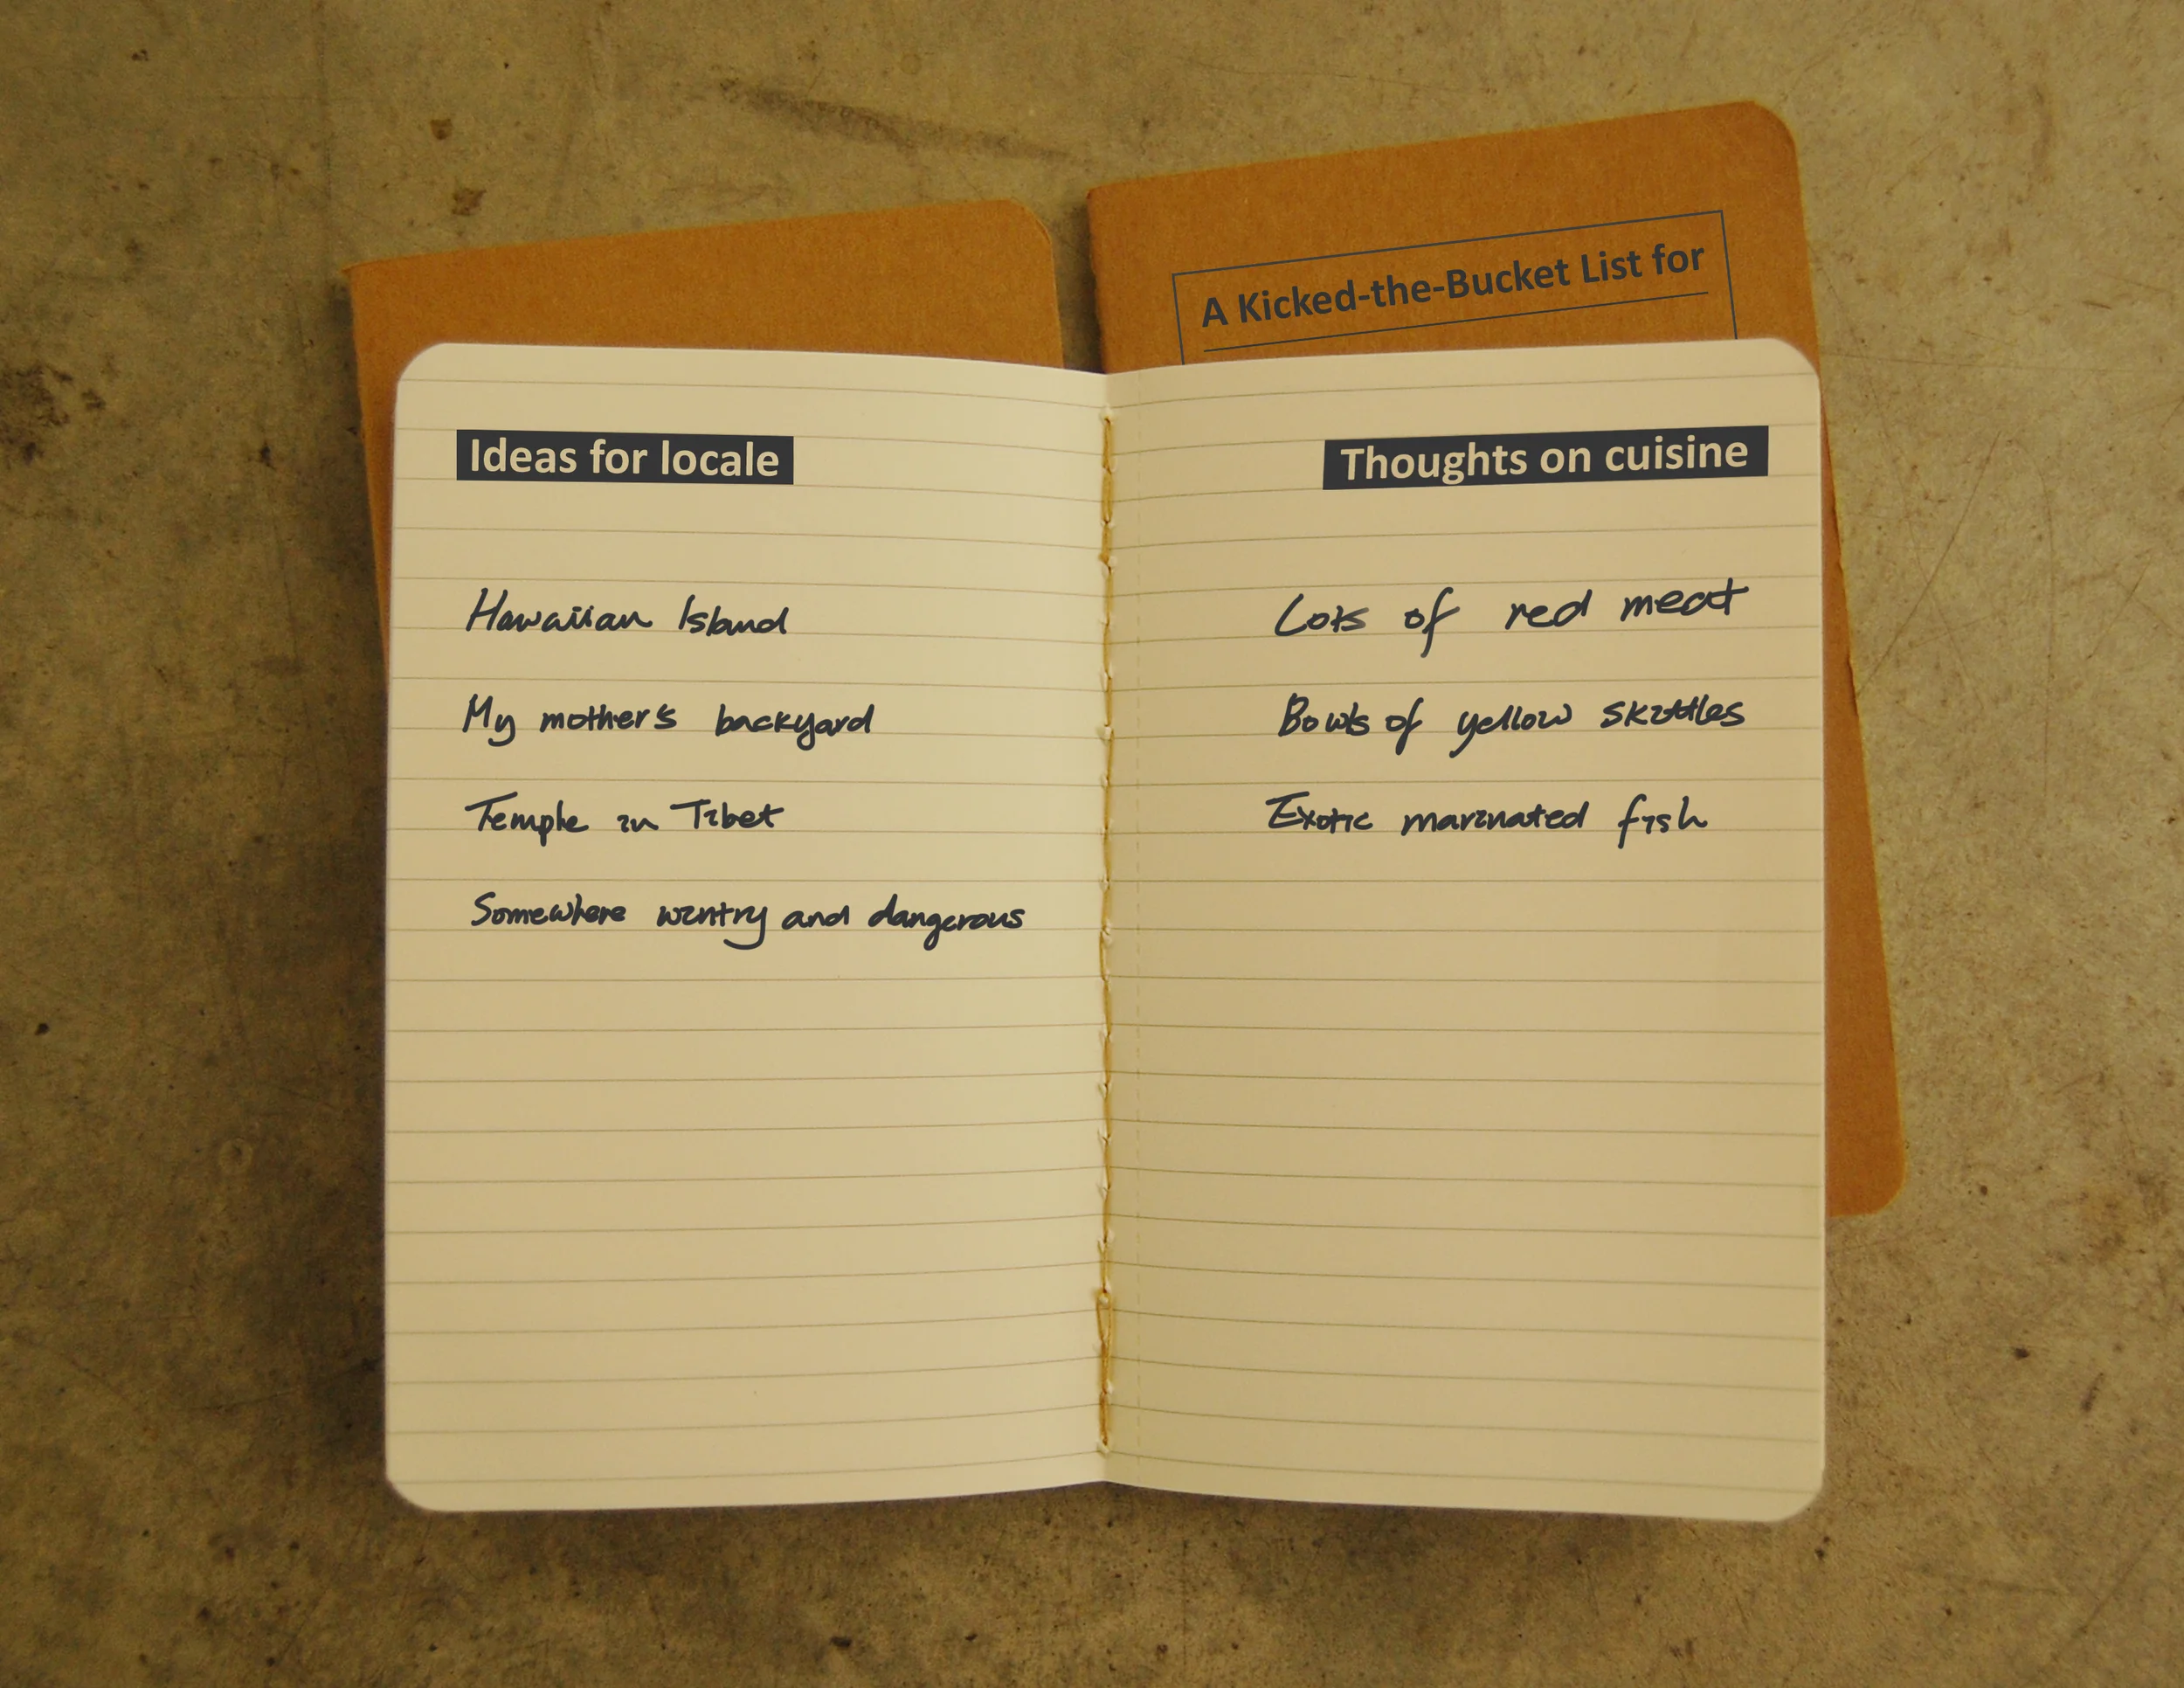 A Kicked-the-Bucket List for
Ideas for locale
Hawaiian Island
My mother's backyard
Temple in Tibet
Somewhere wintry and dangerous
Thoughts on cuisine
Lots of red meat
Bowls of yellow skittles
Exotic marinated fish